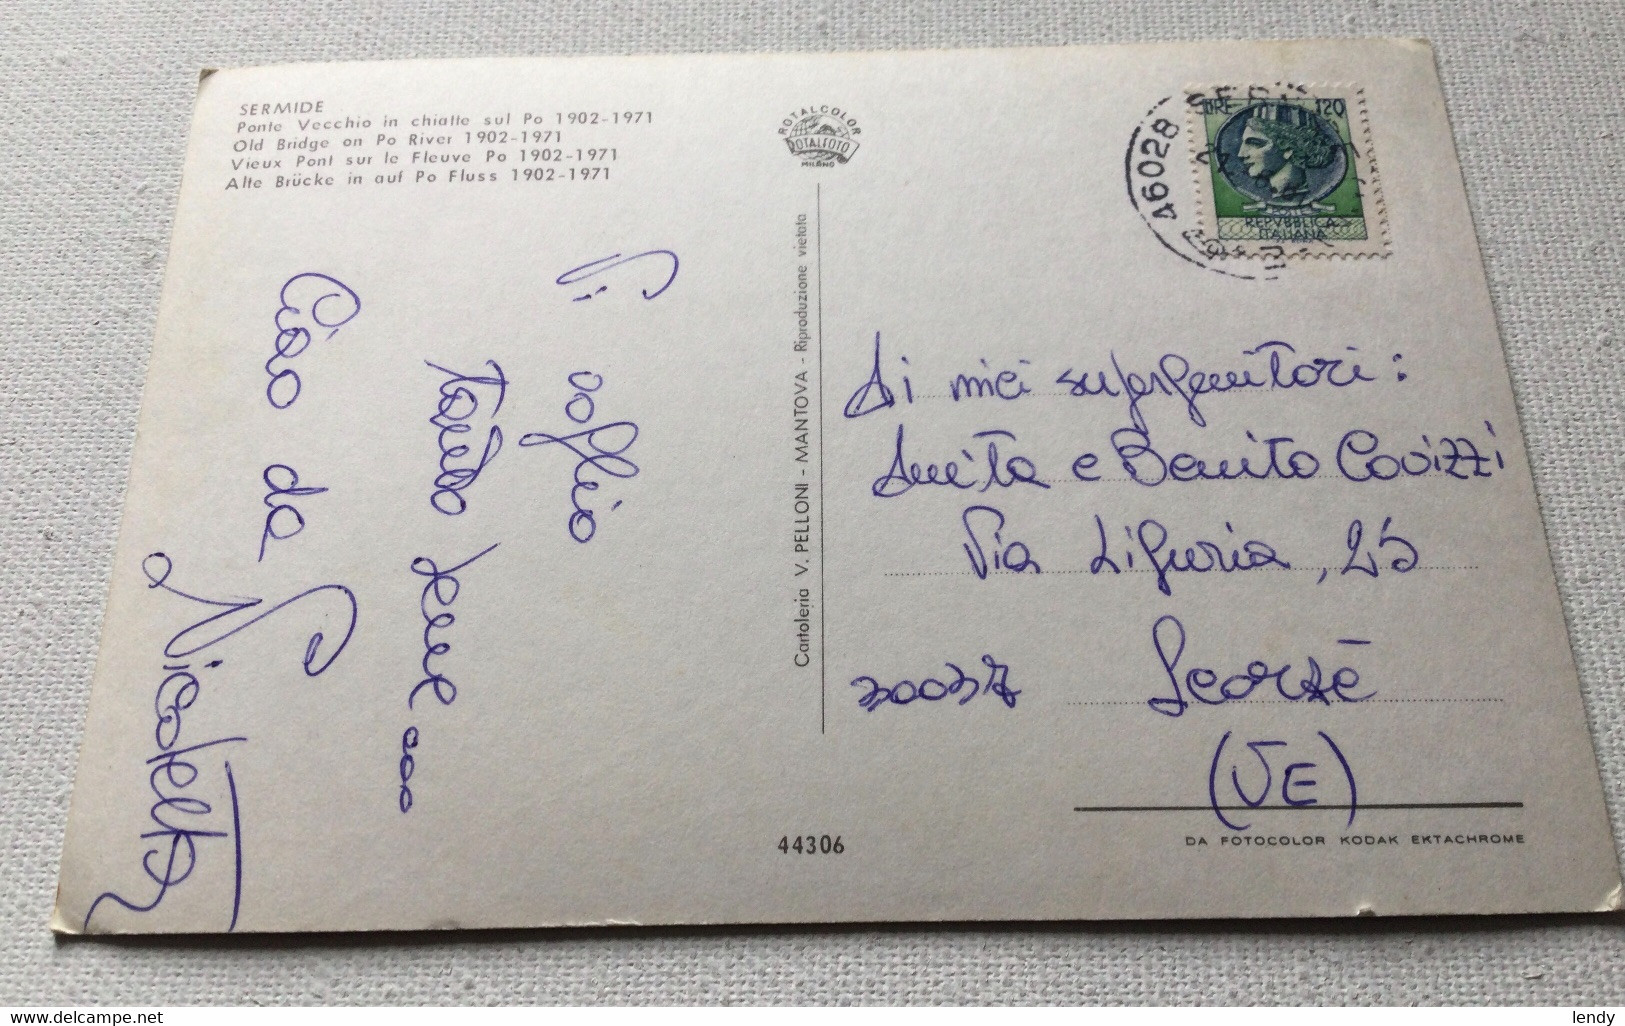 SERMIDE
Ponte Vecchio in chiatte sul Po 1902-1971
Old Bridge on Po River 1902-1971
Vieux Pont sur le Fleuve Po 1902-1971
Alte Brücke in auf Po Fluss 1902-1971
ROTALCOLOR
ROTALFOTO
MILANO
LIRE 120
POSTE
REPVBBLICA
ITALIANA
46028
Vi voglio
tanto bene...
Ciao da
Nicoletta
Cartoleria V. PELLONI - MANTOVA - Riproduzione vietata
Ai miei supergenitori:
Anita e Benito Covizzi
Via Liguria, 25
30037 Scorzè
(VE)
44306
DA FOTOCOLOR KODAK EKTACHROME
www.delcampe.net
lendy